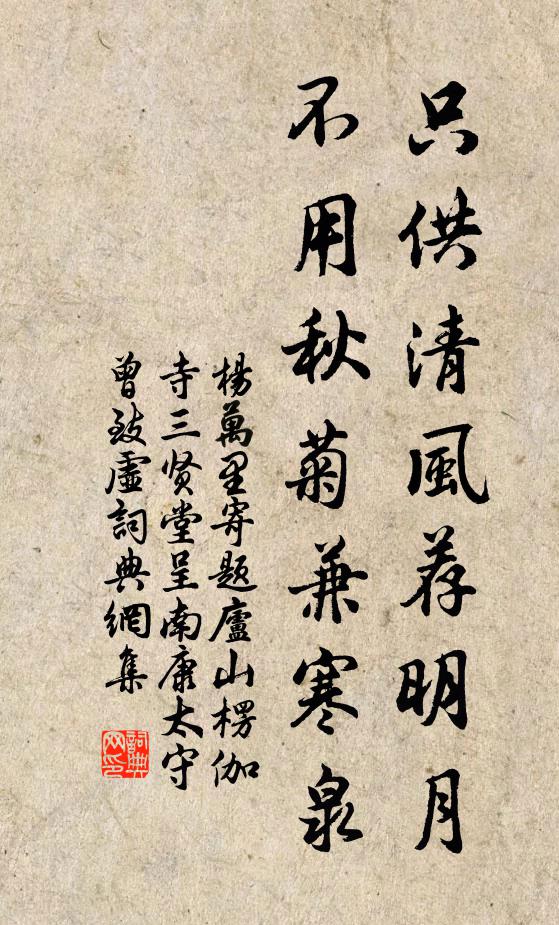 只供清風荐明月
不用秋菊兼寒泉
楊萬里寄題廬山楞伽
寺三贤堂呈南康太守
曾致虛詞典網集
詞典
网印